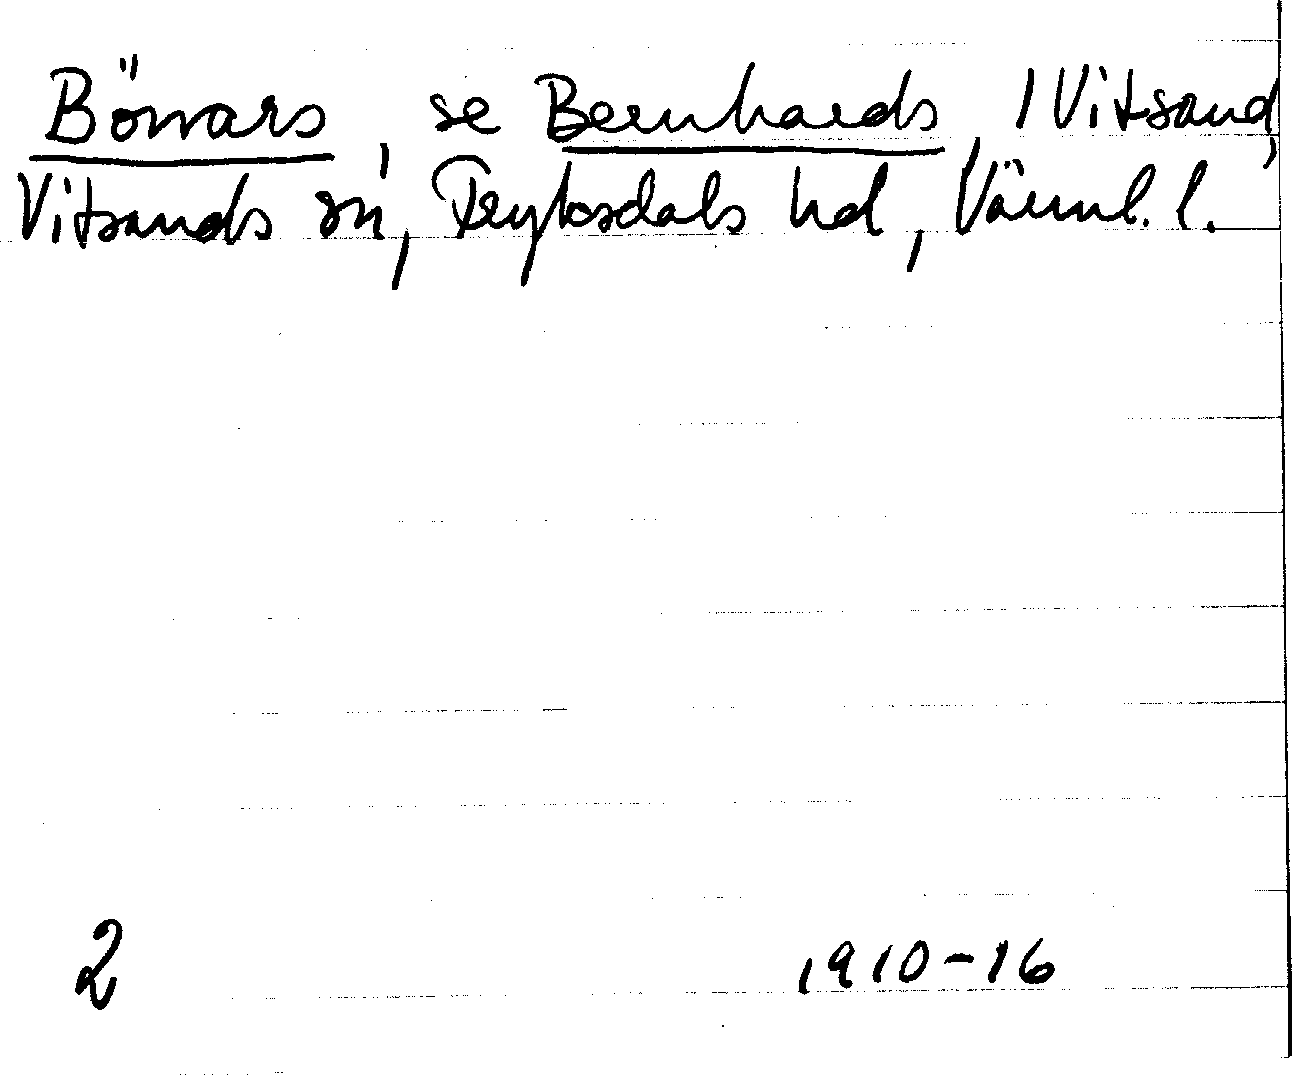 Börvars, se Bernhards, 1 Vitsand,
Vitsands sn, Fryksdals hd, Värml. l.
2 1910-16